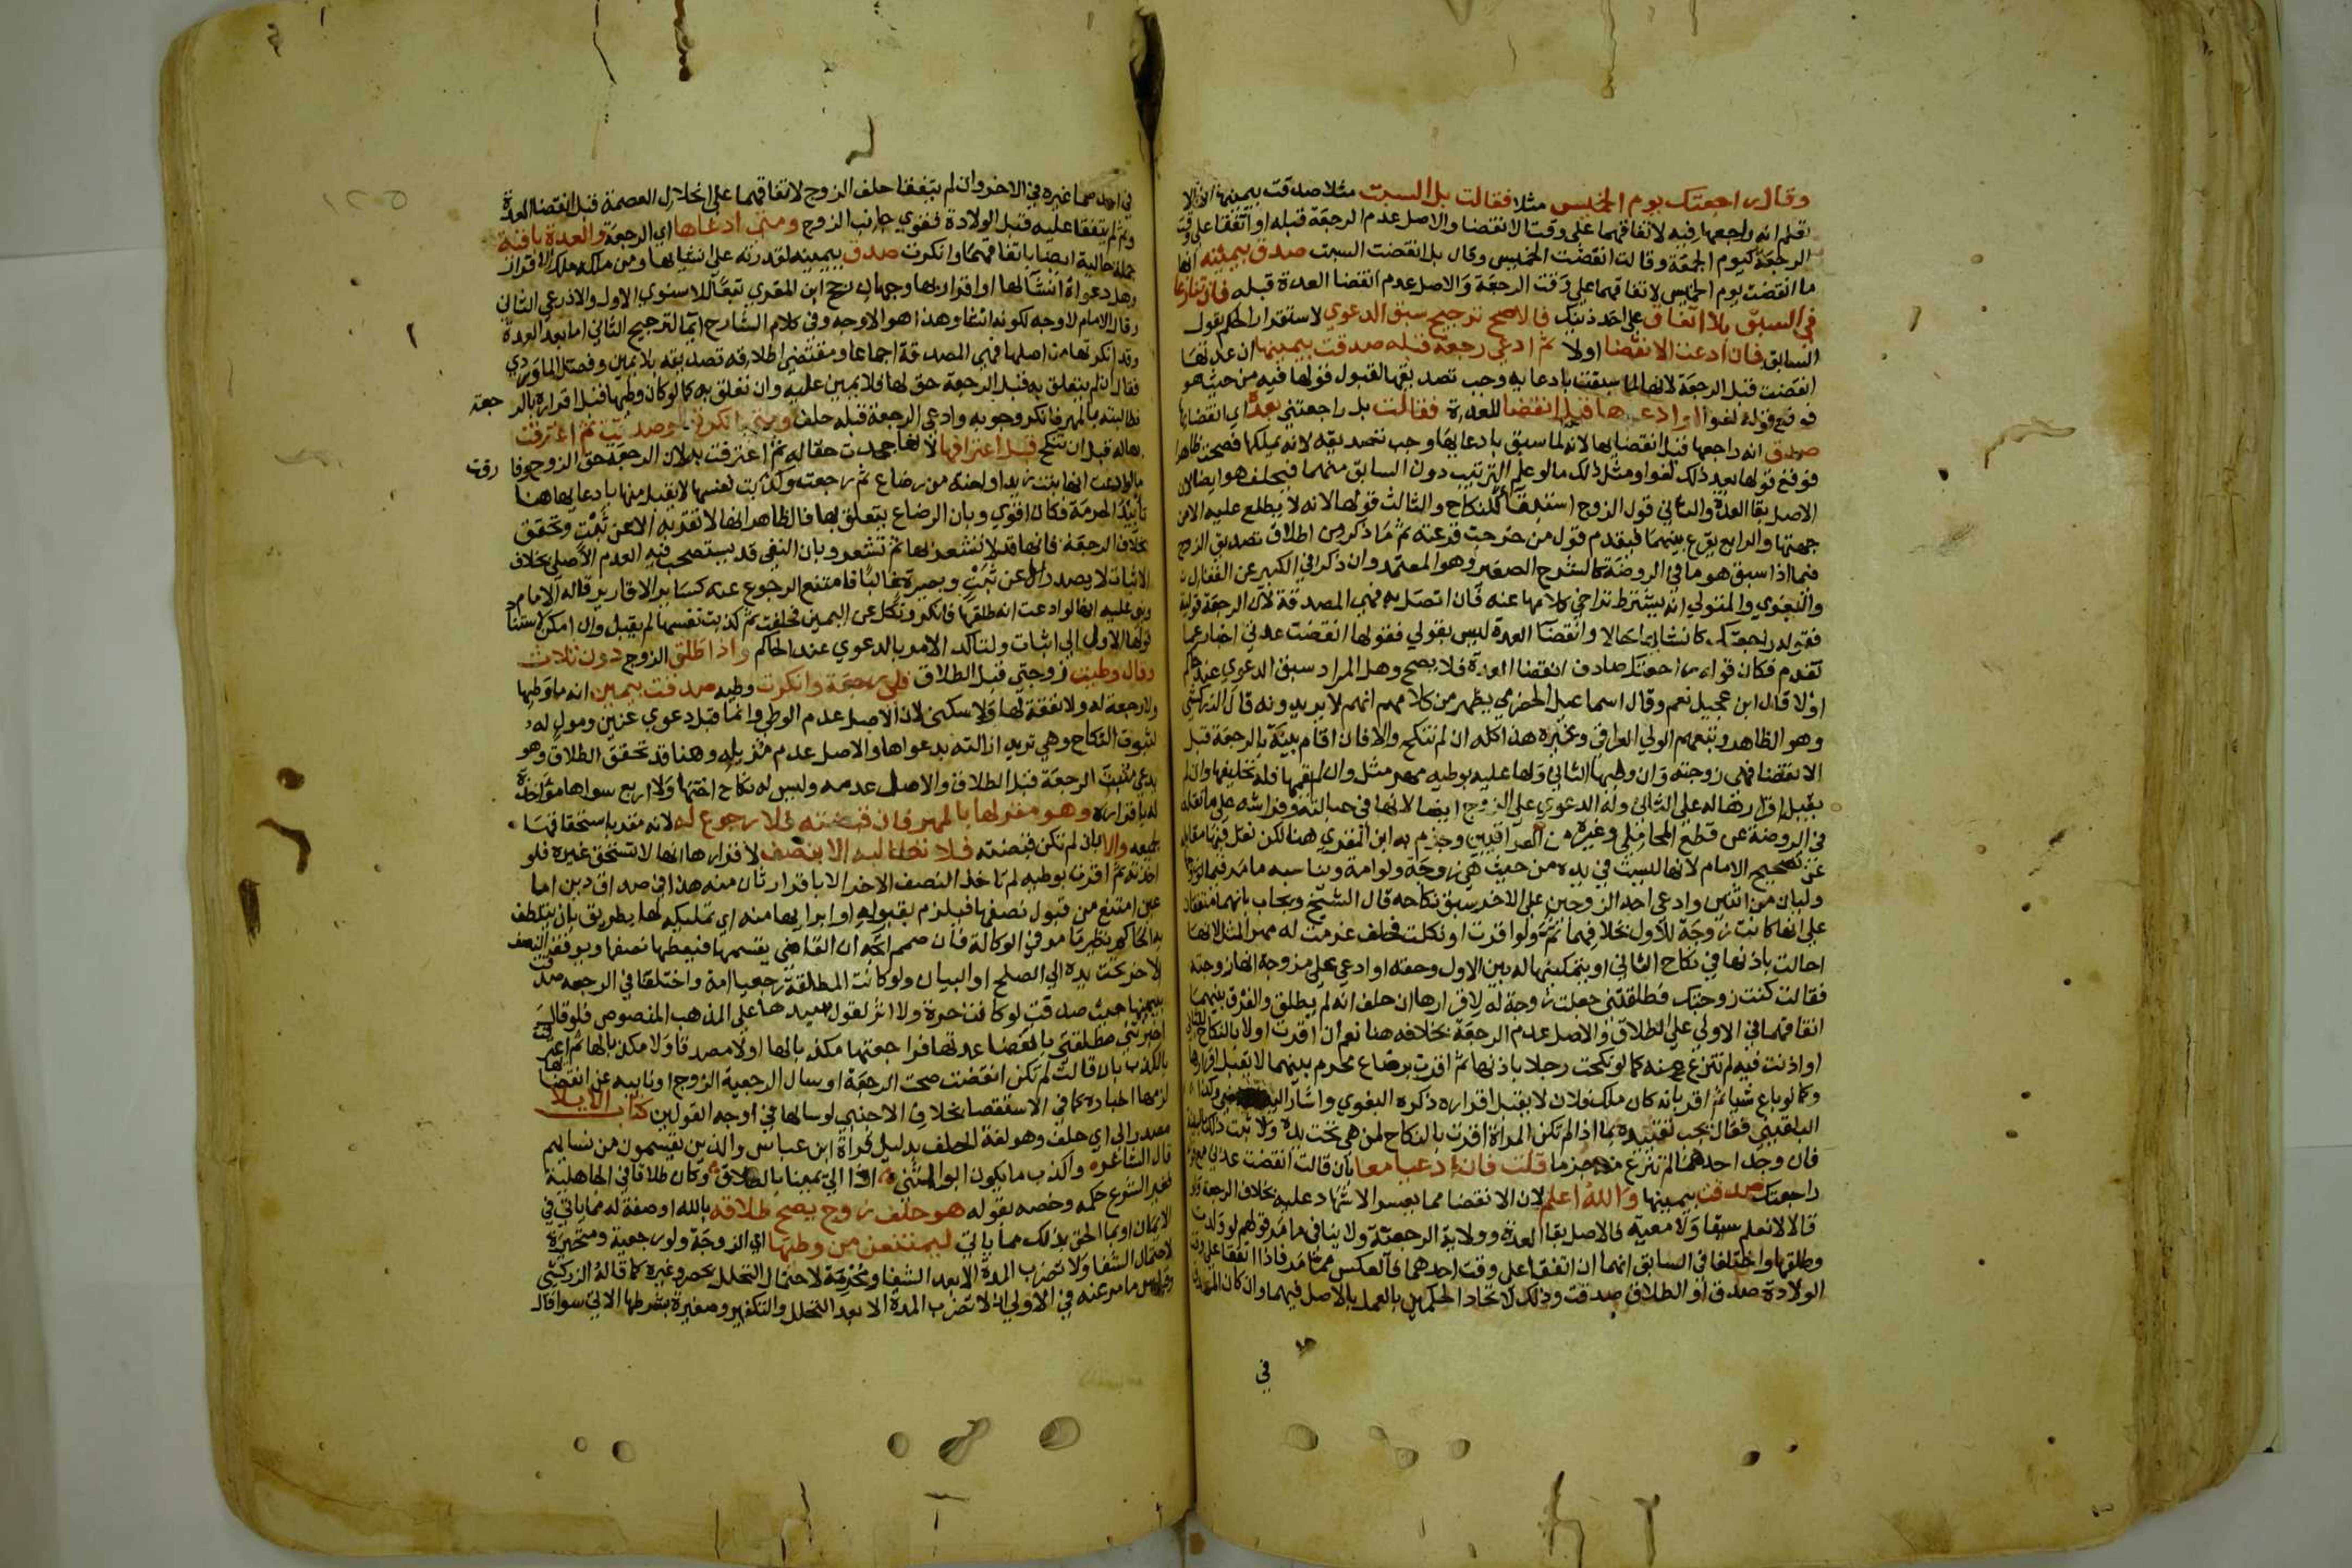 وقال راجعتك يوم الخميس مثلا فقالت بل السبت مثلا صدقت بيمينها انها لا
تعلم انه راجعها فيه لاتفاقهما على وقت الانقضا والاصل عدم الرجعة قبله او اتفقا على وقت
الرجعة كيوم الجمعة وقالت انقضت الخميس وقال بل انقضت السبت صدق بيمينه انها
ما انقضت يوم الخميس لاتفاقهما على وقت الرجعة والاصل عدم انقضا العدة قبله فان تنازعا
في السبق بلا اتفاق على احد ذينك فالاصح ترجيح سبق الدعوي لاستقرار الحكم بقول
السابق فان ادعت الانقضا اولا ثم ادعى رجعة قبله صدقت بيمينها ان عدتها
انقضت قبل الرجعة لانها لما سبقت بادعائه وجب تصديقها لقبول قولها فيه من حيث هو
فوقع قوله لغوا او ادعاها قبل انقضا للعدة فقالت بل راجعتني بعده اي انقضائها
صدق انه راجعها قبل انقضايها لانه لما سبق بادعايها وجب تصديقه لانه يملكها فصحت ظاهرا
فوقع قولها بعد ذلك لغوا ومثل ذلك ما لو علم الترتيب دون السابق منهما فيحلف هو ايضا لان
الاصل بقا العدة والثاني قول الزوج استبقاءً للنكاح والثالث قولها لانه لا يطلع عليه الا من
جهتها والرابع يقرع بينهما فيقدم قول من خرجت قرعته ثم ما ذكر من اطلاق تصديق الزوج
فيما اذا سبق هو ما في الروضة كالشرح الصغير وهو المعتمد وان ذكرا في الكبير عن القفال
والبغوي والمتولي انه يشترط تراخي كلامها عنه فان اتصل به فهي المصدقة لان الرجعة قولية
فقوله راجعتك كانشائها حالا وانقضا العدة ليس بقولي فقولها انقضت عدتي اخبار عما
تقدم فكان قوله راجعتك صادف انقضا العدة فلا يصح وهل المراد سبق الدعوي عند حاكم
اولا قال ابن عجيل نعم وقال اسماعيل الحضرمي يظهر من كلامهم انهم لا يريدونه قال الزركشي
وهو الظاهر وتبعهم الولي العراقي وغيره هذا كله ان لم تنكح والا فان اقام بينة بالرجعة قبل
الانقضا فهي زوجته وان وطيها الثاني ولها عليه بوطيه مهر مثل وان لم يقمها فله تحليفها وان لم
يقبل اقرارها له على الثاني وله الدعوي على الزوج ايضا لانها في حبالته وفراشه على ما نقله
في الروضة عن قطع المحاملي وغيره من العراقيين وجزم به ابن المقري هنا لكن نقل فيها مقابله
عن تصحيح الامام لانها ليست في يده من حيث هي زوجة ولو امة ويناسبه ما مر فيما لو زوجها
وليان من اثنين وادعى احد الزوجين على الاخر سبق نكاحه قال الشيخ ويجاب بانهما متفقان
على انها كانت زوجة للاول بخلافهما ثم ولو اقرت او نكلت فحلف غرمت له مهر المثل لانها
احالت باذنها في نكاح الثاني او بتمكينها له بين الاول وحقه او ادعى على مزوجة انها زوجته
فقالت كنت زوجتك فطلقتني جعلت زوجة له لاقرارها ان حلف انه لم يطلق والفرق بينهما
اتفاقهما في الاولى على الطلاق والاصل عدم الرجعة بخلافه هنا نعم ان اقرت اولا بالنكاح للثاني
او اذنت فيه لم تنزع منه كما لو نكحت رجلا باذنها ثم اقرت برضاع محرم بينهما لا يقبل اقرارها
وكما لو باع شيا ثم اقر بانه كان ملك فلان لا يقبل اقراره ذكره البغوي واشار اليه
البلقيني فقال يجب تقييده بما اذا لم تكن المراة اقرت بالنكاح لمن هي تحت يده ولا ثبت ذلك بالبينة
فان وجد احدهما لم تنزع منه جزما قلت فان ادعيا معا بان قالت انقضت عدتي مع قوله
راجعتك صدقت بيمينها والله اعلم لان الانقضا مما يعسر الاشهاد عليه بخلاف الرجعة ولو
قالا لا نعلم سبقا ولا معية فالاصل بقا العدة وولاية الرجعة ولا ينافي ما مر قولهم لو ولدت
وطلقها واختلفا في السابق انهما ان اتفقا على وقت احدهما فالعكس مما مر فاذا اتفقا على وقت
الولادة صدق او الطلاق صدقت وذلك لاتحاد الحكمين بالعمل بالاصل فيهما وان كان المصدق
في
في احدهما غيره في الاخر وان لم يتفقا حلف الزوج لاتفاقهما على انحلال العصمة قبل انقضا العدة
وثم لم يتفقا عليه قبل الولادة فقوي جانب الزوج ومتى ادعاها اي الرجعة والعدة باقية
جملة حالية ايضا باتفاقهما وانكرت صدق بيمينه لقدرته على انشايها ومن ملكه ملك الاقرار
وهل دعواه انشاء لها او اقرار بها وجهان رجح ابن المقري تبعاً للاسنوي الاول والاذرعي الثاني
وقال الامام لا وجه لكونه انشا وهذا هو الاوجه وفي كلام الشارح ايما لترجيح الثاني اما بعد العدة
وقد انكرتها من اصلها فهي المصدقة اجماعا ومقتضى اطلاقه تصديقه بلا يمين وفصل الماوردي
فقال ان لم يتعلق به قبل الرجعة حق لها فلا يمين عليه وان تعلق به كما لو كان وطيها قبل اقراره بالرجعة
فطالبته بالمهر فانكر وجوبه وادعى الرجعة قبله حلف ومتى انكرتها وصدقت ثم اعترفت
بها له قبل ان تنكح قبل اعترافها لانها جحدت حقا له ثم اعترفت به لان الرجعة حق الزوج وفارقت
ما لو ادعت انها بنت زيد او اخته من رضاع ثم رجعت وكذبت نفسها لا يقبل منها بادعايها هنا
تأبيد الحرمة فكان اقوي وبان الرضاع يتعلق بها فالظاهر انها لا تقر به الا عن تثبت وتحقق
بخلاف الرجعة فانها قد لا تشعر بها ثم تشعر وبان النفي قد يستصحب فيه العدم الاصلي بخلاف
الاثبات لا يصدر الا عن تثبت وبصيرة غالبا فامتنع الرجوع عنه كساير الاقارير قاله الامام
ونص عليه انها لو ادعت انه طلقها فانكر ونكل عن اليمين فحلفت ثم كذبت نفسها لم يقبل وان امكن لاستناد
قولها الاول الى اثبات ولتاكد الامر بالدعوي عند الحاكم واذا طلق الزوج دون ثلاث
وقال وطيت زوجتي قبل الطلاق فلي رجعة وانكرت وطيه صدقت بيمين انه ما وطيها
ولا رجعة له ولا نفقة لها ولا سكنى لان الاصل عدم الوطي وانما قبل دعوي عنين ومول له
لثبوت النكاح وهي تريد ازالته بدعواها والاصل عدم مزيله وهنا قد تحقق الطلاق وهو
يدعي مثبت الرجعة قبل الطلاق والاصل عدمه وليس له نكاح اختها ولا اربع سواها مؤاخذة
له باقراره وهو مقر لها بالمهر فان قبضته فلا رجوع له لانه مقر باستحقاقها
جميعه والا بان لم تكن قبضته فلا تطالبه الا بنصف لاقرارها انها لا تستحق غيره فلو
اخذته ثم اقرت بوطيه لم تاخذ النصف الاخر الا باقرار ثان منه هذا في صداق دين اما
عين امتنع من قبول نصفها فيلزم بقبوله او ابرايها منه اي تمليكه لها بطريق بان يتلطف
به الحاكم نظير ما مر في الوكالة فان صمم اتجه ان القاضي يقسمها فيعطيها نصفا ويوقف النصف
الاخر تحت يده الى الصلح او البيان ولو كانت المطلقة رجعيا امة واختلفا في الرجعة صدقت
بيمينها حيث صدقت لو كانت حرة ولا اثر لقول سيدها على المذهب المنصوص فلو قال
اخبرتني مطلقتي بانقضا عدتها فراجعتها مكذبا لها اولا مصدقا ولا مكذبا لها ثم اعترفت
بالكذب بان قالت لم تكن انقضت صحت الرجعة او سال الرجعية الزوج او نايبه عن انقضايها
لزمها اخباره كما في الاستقصا بخلاف الاجنبي لو سالها في اوجه القولين كتاب الايلا
مصدر الى اي حلف وهو لغة الحلف بدليل قراة ابن عباس والذين يقسمون من نسايهم
قال الشاعر واكذب ما يكون ابو المثنى اذا الى يمينا بالطلاق وكان طلاقا في الجاهلية
فغير الشرع حكمه وخصه بقوله هو حلف زوج يصح طلاقه بالله او صفة له مما ياتي في
الايمان او بما الحق بذلك مما ياتي ليمتنعن من وطيها اي الزوجة ولو رجعية ومتحيرة
لاحتمال الشفا ولا تضرب المدة الا بعد الشفا ومحرمة لاحتمال التحلل بحصر وغيره كما قاله الزركشي
وقياس ما مر عنه في الاولى انه لا تضرب المدة الا بعد التحلل والتكفير وصغيرة بشرطها الاتي سوا قال